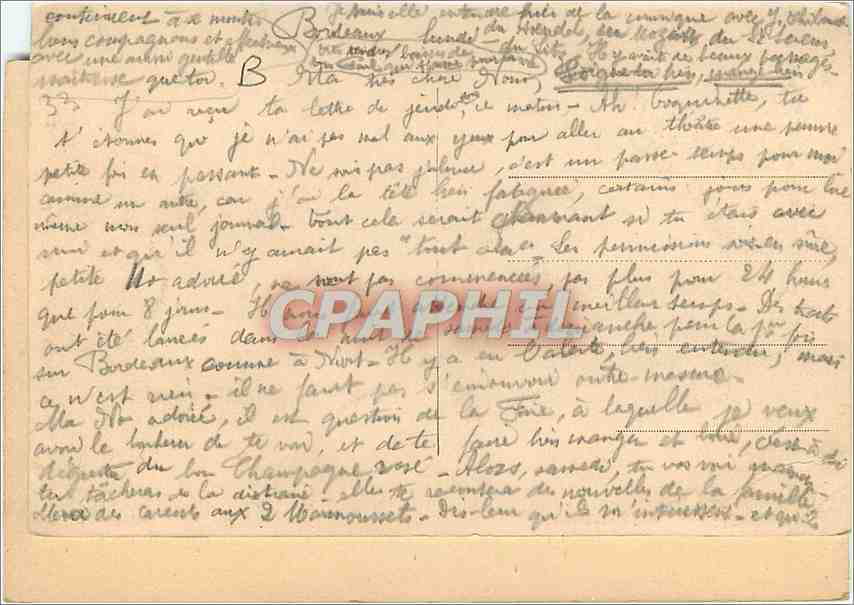 continuent à se montrer Je suis allé entendre hier de la musique avec J. Thibaud
bons compagnons et Bordeaux lundi du Haendel, du Mozart, du St Saens
avec une aussi gentille du Litz. Il y avait de beaux passages
maîtresse que toi. B Ma très chère Nono, Soigne toi bien, mange bien
33 J'ai reçu ta lettre de jeudi, ce matin - Ah! coquinette, tu
t'étonnes que je n'ai pas mal aux yeux pour aller au théâtre une pauvre
petite fois en passant - Ne sois pas jalouse, c'est un passe temps pour moi
comme un autre, car j'ai la tête bien fatiguée, certains jours pour lire
même mon seul journal - tout cela serait charmant si tu étais avec
moi et qu'il n'y aurait pas "tout cela" Les permissions
petite No adorée, ne sont pas commencées, pas plus pour 24 heures
que pour 8 jours - Il nous faut attendre un meilleur temps - Des tracts
ont été lancés dans la nuit de samedi à dimanche, pour la 1ère fois
sur Bordeaux comme à Niort - Il y a eu alerte, bien entendu, mais
ce n'est rien - il ne faut pas s'émouvoir outre-mesure -
Ma No adorée, il est question de la Foire, à laquelle je veux
avoir le bonheur de te voir, et de te faire bien manger et boire,
déguster du bon Champagne rosé - Alors, samedi, tu vas voir maman
tu tâcheras de la distraire, elle te racontera des nouvelles de la famille
des caresses aux 2 Marmoussets - Dis-leur qu'ils m'intéressent - et qu'ils
CPAPHIL